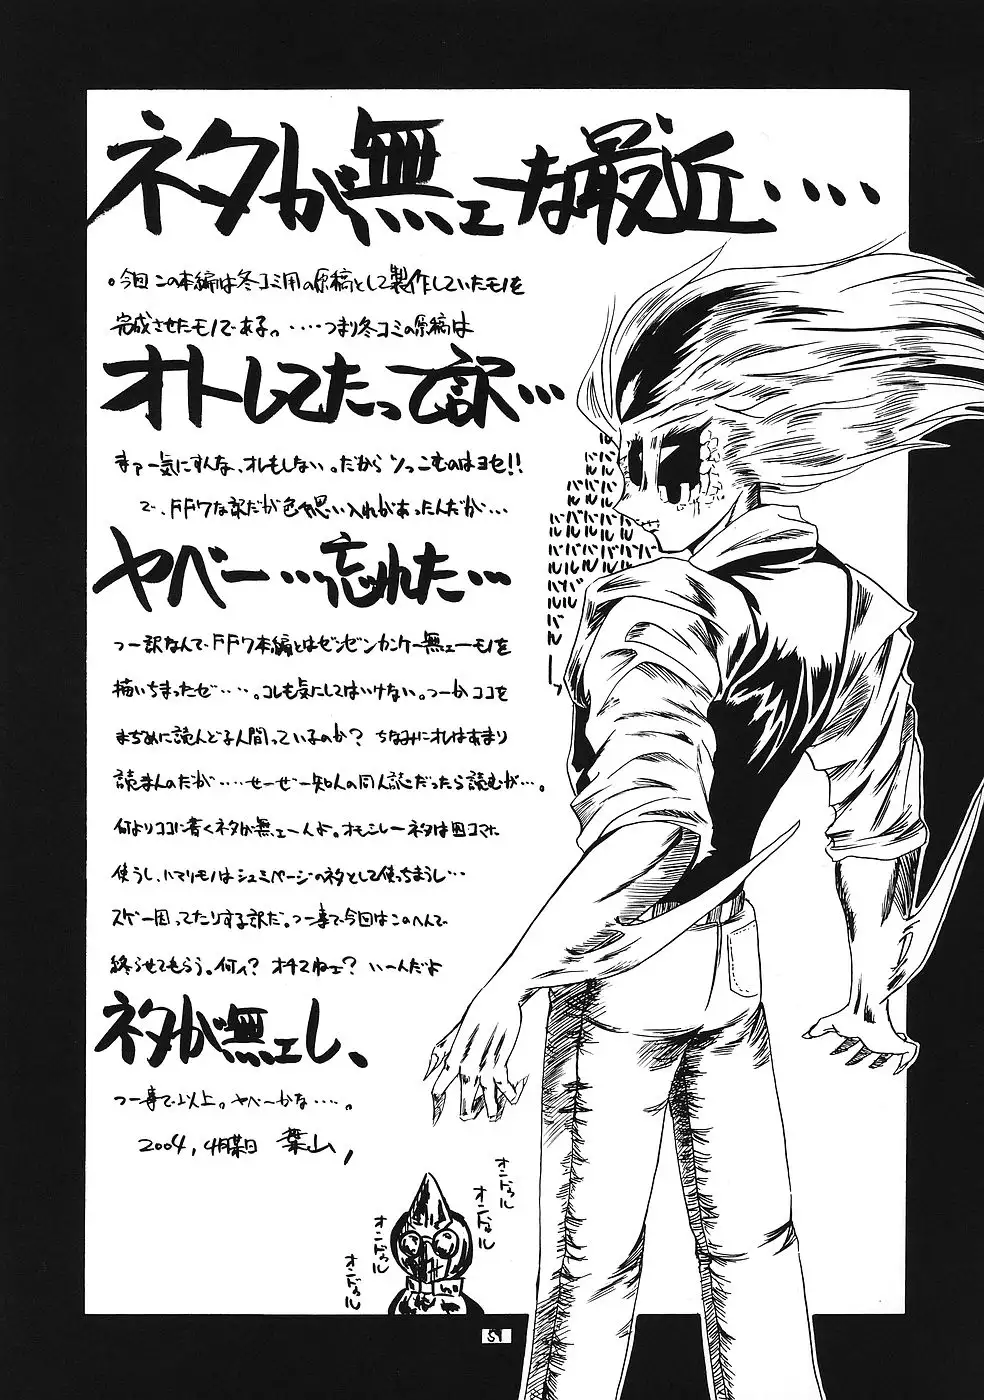 ネタが無ェーな最近・・・・
。今回この本編は冬コミ用の原稿として製作していたモノを
完成させたモノである。・・・・つまり冬コミの原稿は
オトしてたって訳・・・
まァ一気にすんな、オレもしない。だからツっこむのはヨセ!!
で、FF7な訳だが色々思い入れがあったんだが・・・
ヤベー・・・忘れた・・・
つー訳なんで、FF7本編とはゼンゼンカンケー無ェーモノを
描いちまったゼ・・・・。コレも気にしてはいけない。つーかココを
まぢめに読んどる人間っているのか? ちなみにオレはあまり
読まんのだが・・・・・せーぜー知人の同人誌だったら読むが・・・。
何よりココに書くネタが無ェーんよ。オモシレーネタは四コマに
使うし、ハマリモノはシュミページのネタとして使っちまうし・・・
スゲー困ってたりする訳だ。つー事で今回はこのへんで
終らせてもらう。何ィ? オチてねェ? いーんだよ
ネタが無ェし、
つー事で以上。ヤベーかな・・・・。
2004, 4月某日 葉山,
バルバルバルバルバル
オンドゥル
オンドゥル
オンドゥル
オンドゥル
51